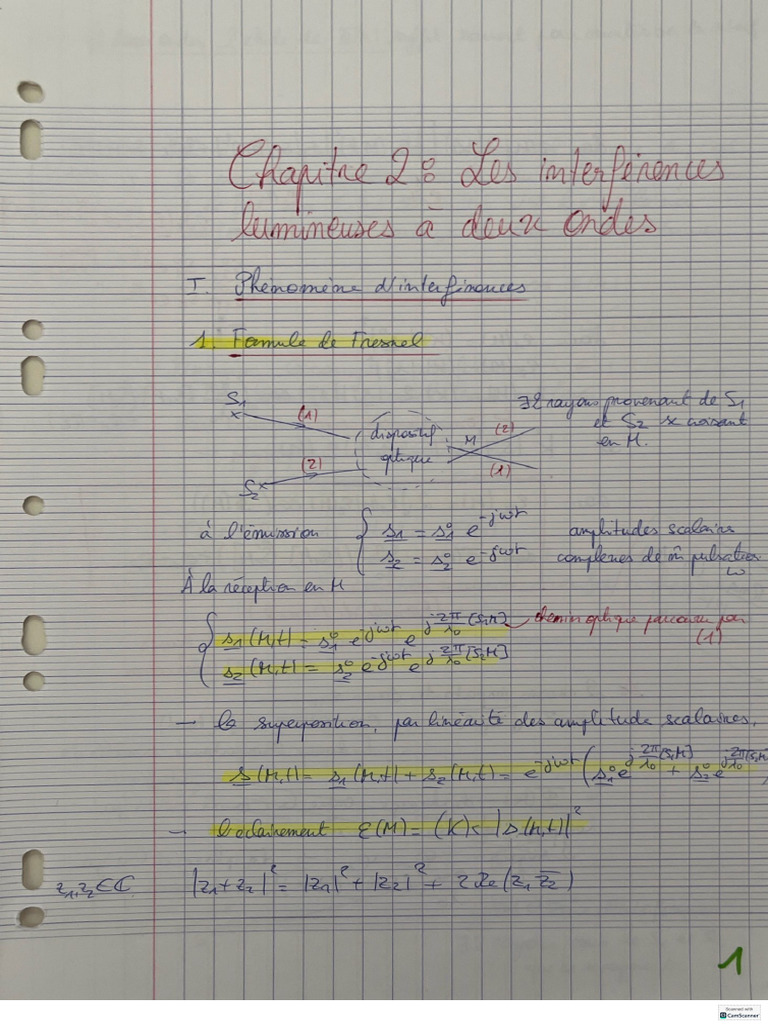 Chapitre 2 : Les interférences
lumineuses à deux ondes
I. Phénomène d'interférences
1. Formule de Fresnel
S1
(1)
S2
(2)
dispositif
optique
M
(2)
(1)
∃ 2 rayons provenant de S1
et S2 se croisant
en M.
à l'émission { s1 = s1° e^-jωt amplitudes scalaires
s2 = s2° e^-jωt complexes de m̂ pulsation
ω
À la réception en M
{ s1(M,t) = s1° e^-jωt e^j 2π/λ0 [S1M] chemin optique parcouru par
(1)
s2(M,t) = s2° e^-jωt e^j 2π/λ0 [S2M]
- la superposition, par linéarité des amplitude scalaires,
s(M,t) = s1(M,t) + s2(M,t) = e^-jωt (s1° e^j 2π/λ0 [S1M] + s2° e^j 2π/λ0 [S2M]
- l'éclairement ε(M) = (K) < |s(M,t)|²
z1,z2 ∈ ℂ |z1+z2|² = |z1|² + |z2|² + 2 Re(z1 z̅2)
1
Scanned with
CamScanner